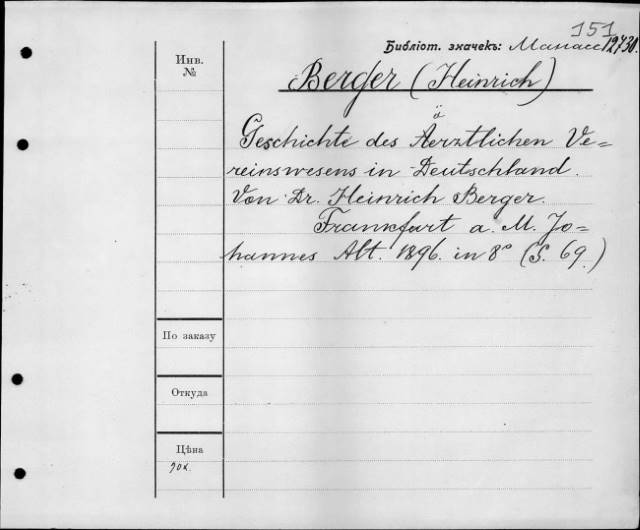 151
Библіот. значекъ: Манасс 12730.
Инв.
№
Berger (Heinrich)
ä
Geschichte des Aerztlichen Ve=
reinswesens in Deutschland.
Von Dr. Heinrich Berger.
Frankfurt a. M. Jo=
hannes Alt. 1896. in 8° (S. 69.)
По заказу
Откуда
Цѣна